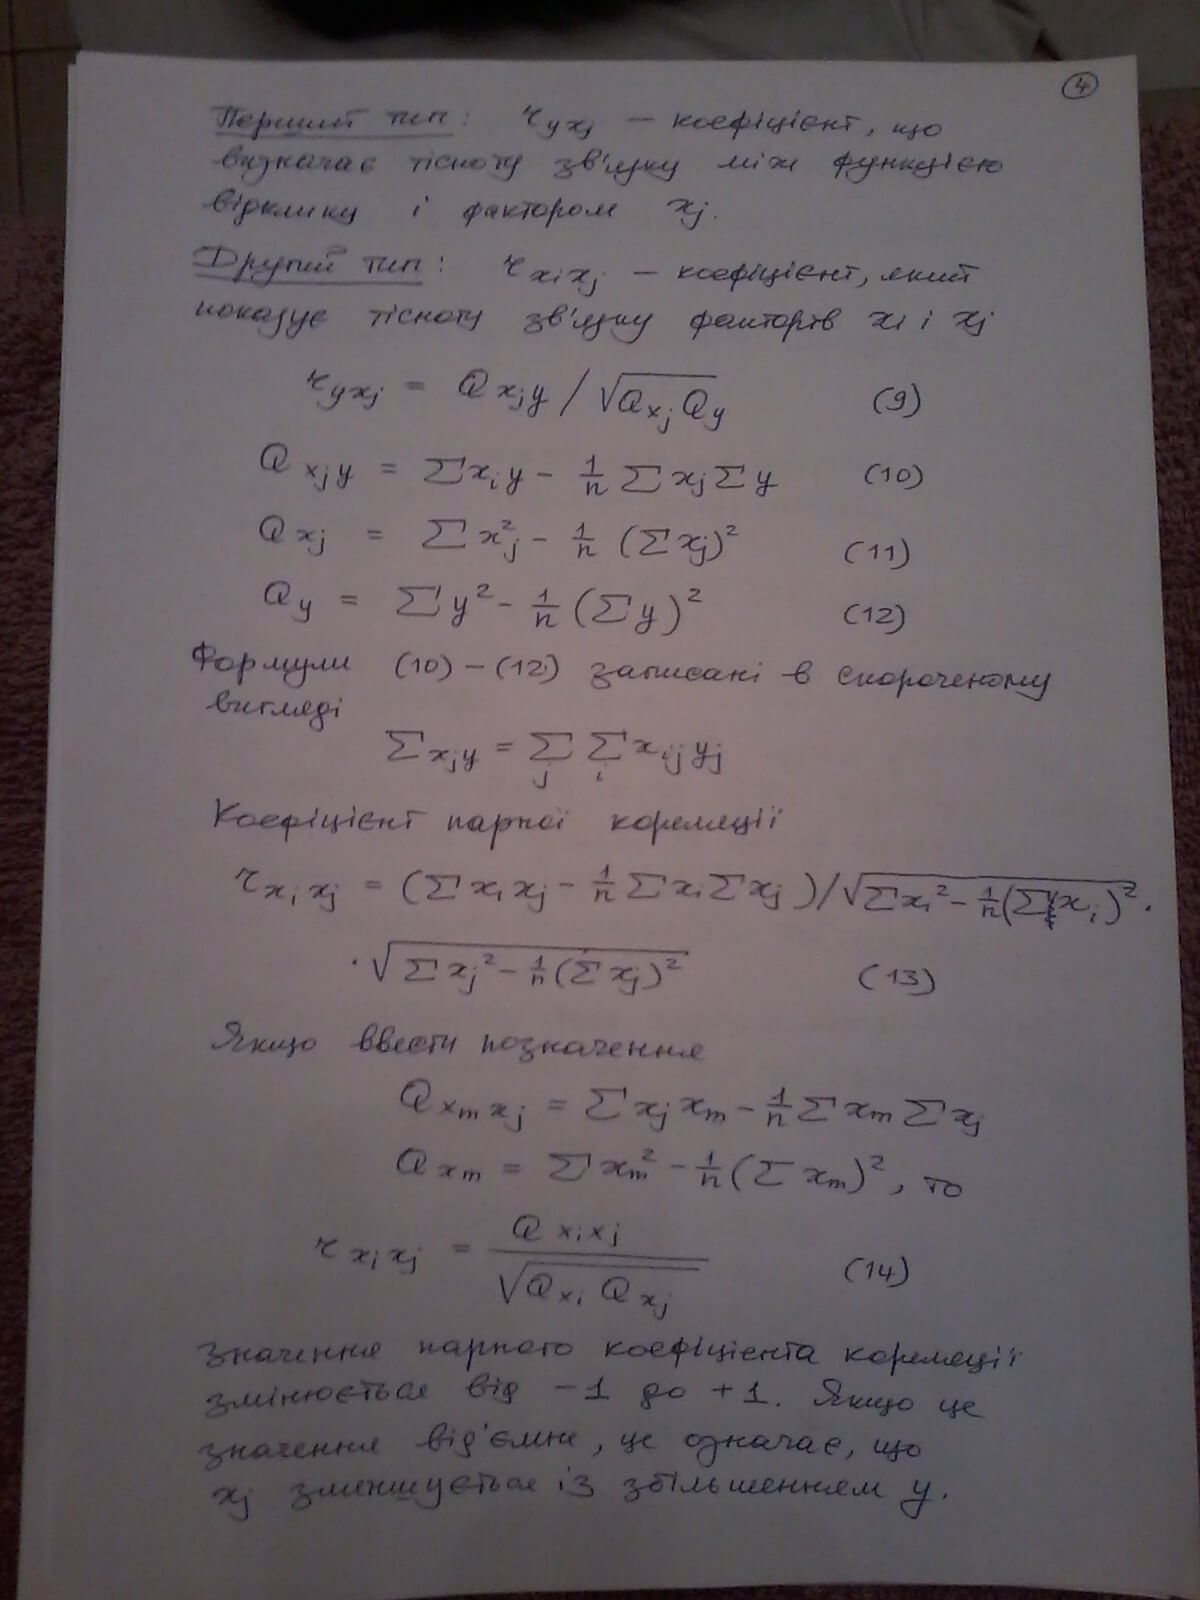 4
Перший тип: r_yxj – коефіцієнт, що
визначає тісноту зв'язку між функцією
відклику і фактором xj.
Другий тип: r_xixj – коефіцієнт, який
показує тісноту зв'язку факторів xi і xj
r_yxj = Q_xjy / √(Q_xj Q_y) (9)
Q_xjy = Σxiy – 1/n Σxj Σy (10)
Q_xj = Σx²j – 1/n (Σxj)² (11)
Q_y = Σy² – 1/n (Σy)² (12)
Формули (10) – (12) записані в скороченому
вигляді
Σxjy = Σj Σi xij yj
Коефіцієнт парної кореляції
r_xixj = (Σxixj – 1/n Σxi Σxj) / √(Σxi² – 1/n (Σxi)²) ·
· √(Σxj² – 1/n (Σxj)²) (13)
Якщо ввести позначення
Q_xmxj = Σxjxm – 1/n Σxm Σxj
Q_xm = Σxm² – 1/n (Σxm)², то
r_xixj = Q_xixj / √(Q_xi Q_xj) (14)
Значення парного коефіцієнта кореляції
змінюється від –1 до +1. Якщо це
значення від'ємне, це означає, що
xj зменшується із збільшенням y.